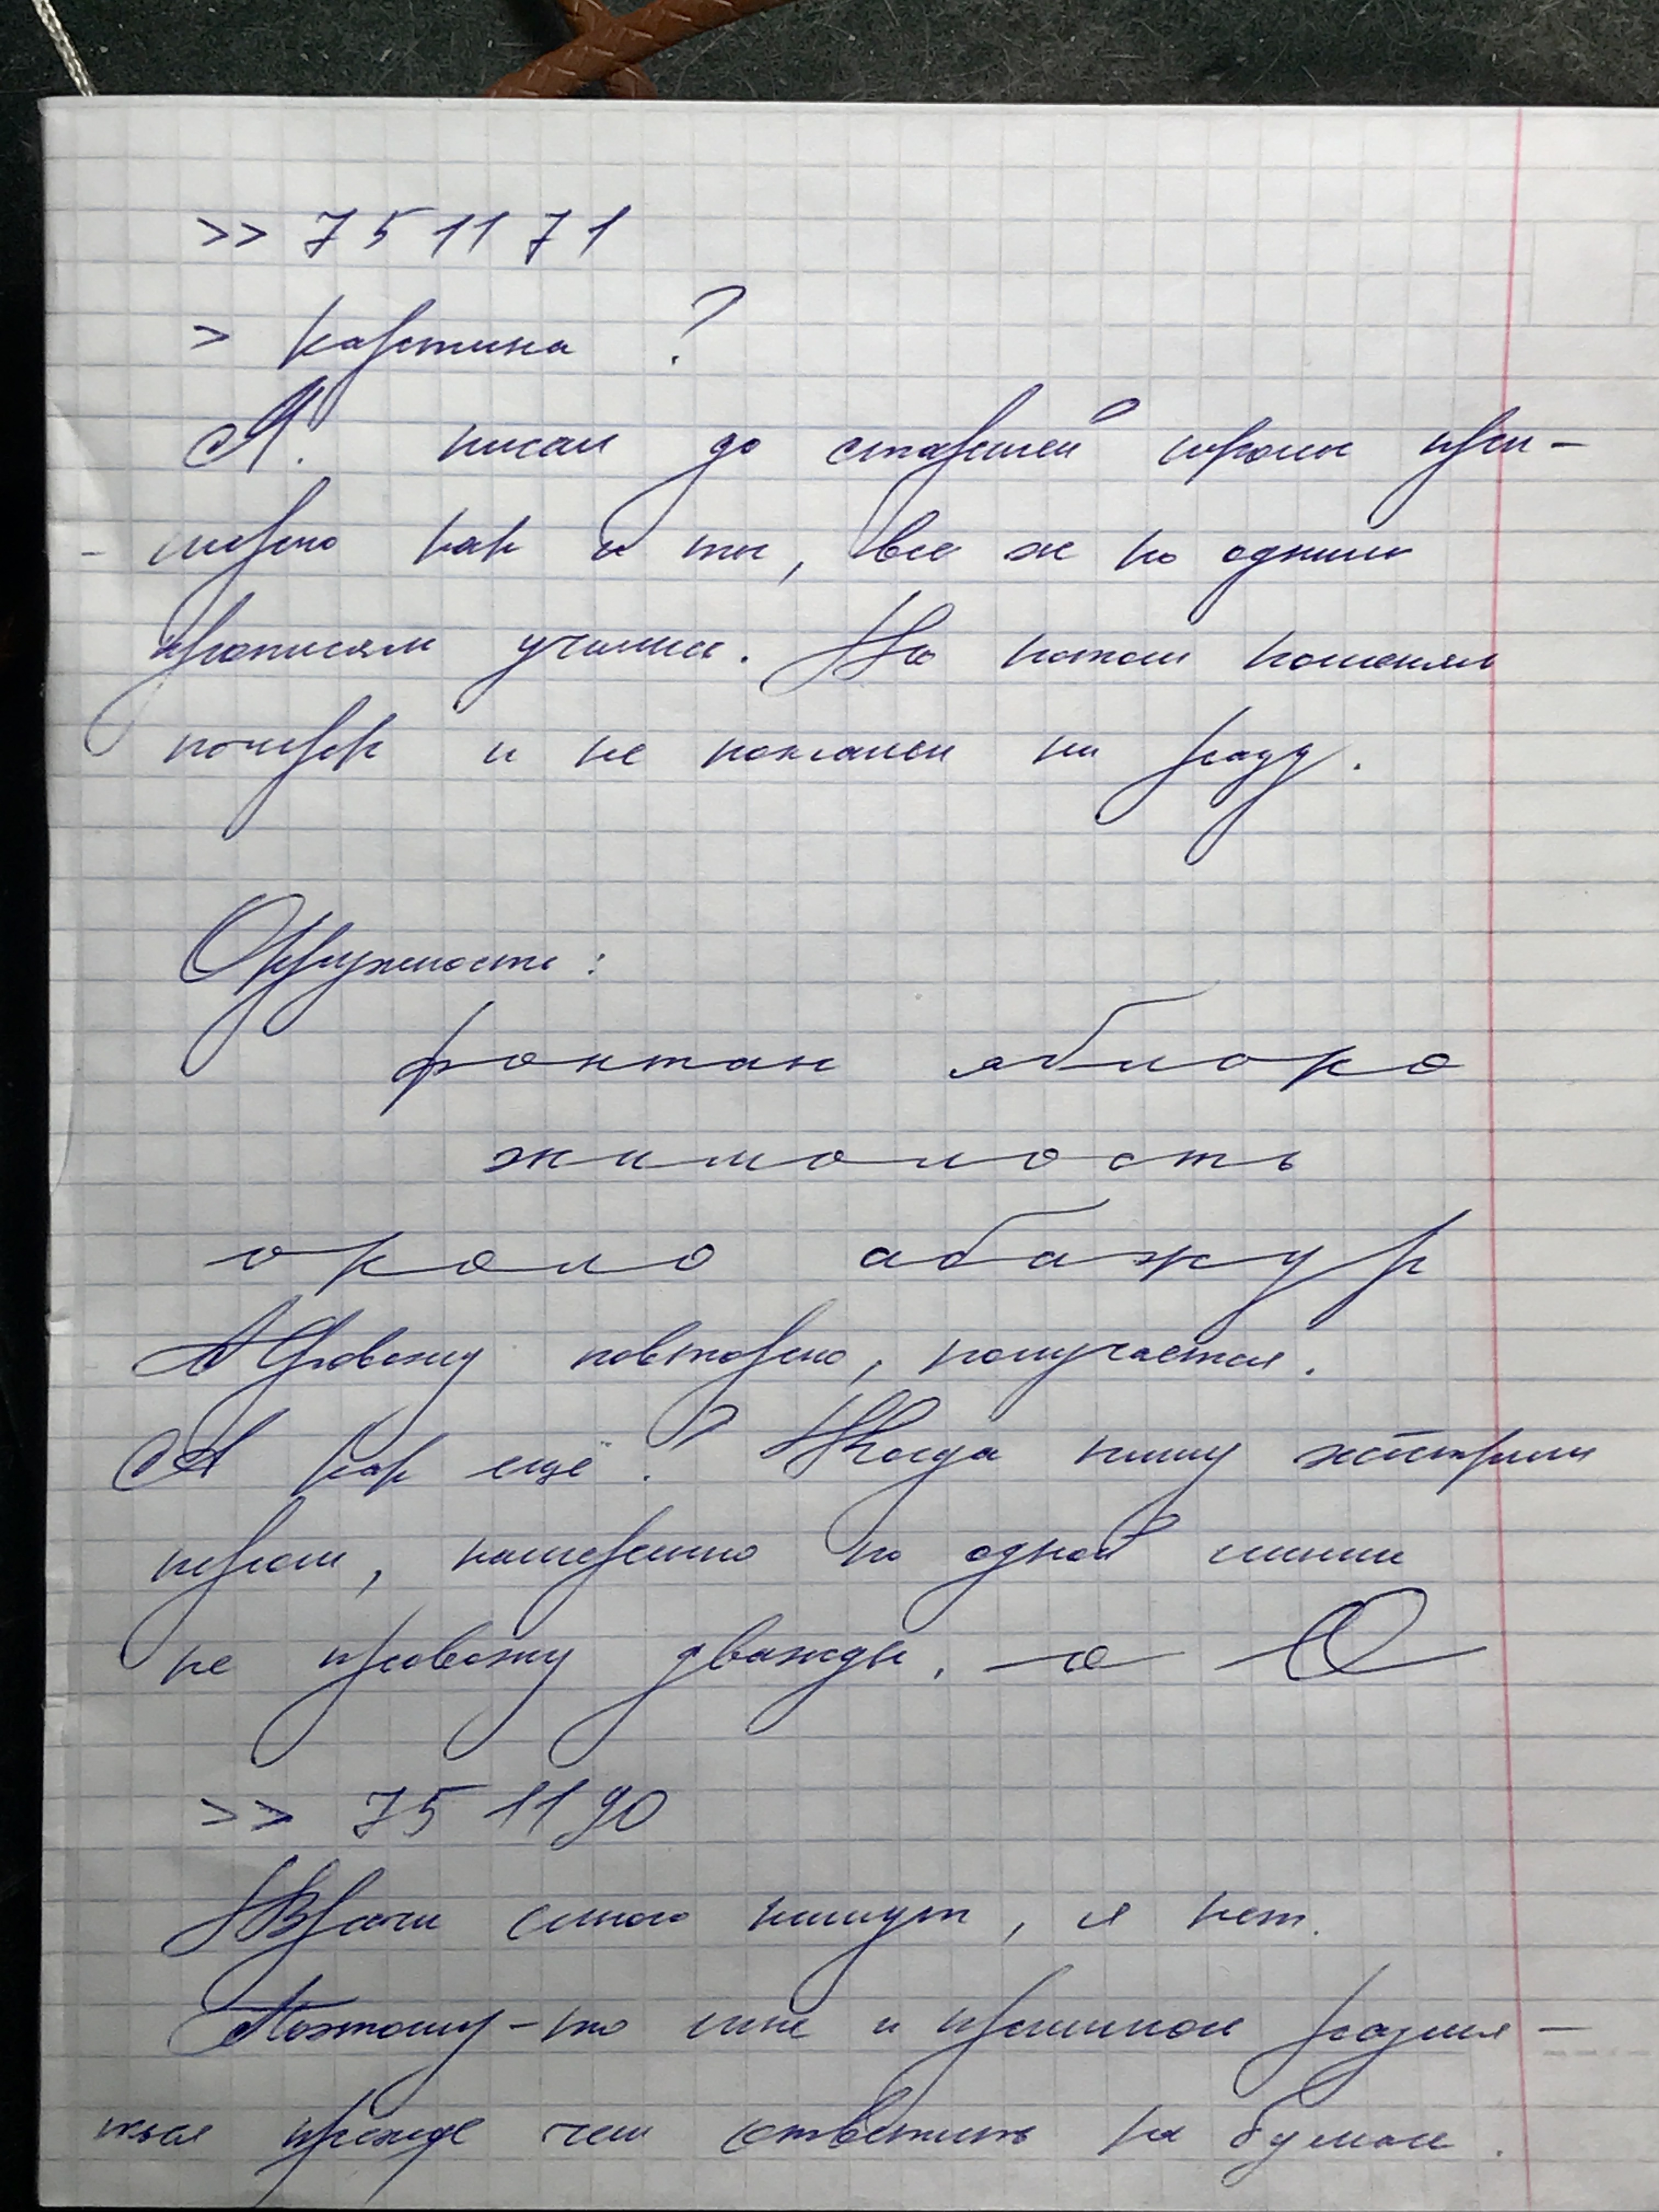 >> 751171
> картина ?
Я. писал до старшей школы при-
- мерно как и ты, все ж по одним
прописям учились. Но потом поменял
почерк и не пожалел ни разу.
Окружность:
фонтан яблоко
жимолость
около абажур
Провожу повторно, получается.
А как ещё? Когда пишу жёстким
пером, намеренно по одной линии
не провожу дважды. о О
>> 751190
Врачи много пишут, я нет.
Поэтому-то мне и пришлось размя-
ться прежде чем ответить на бумаге.